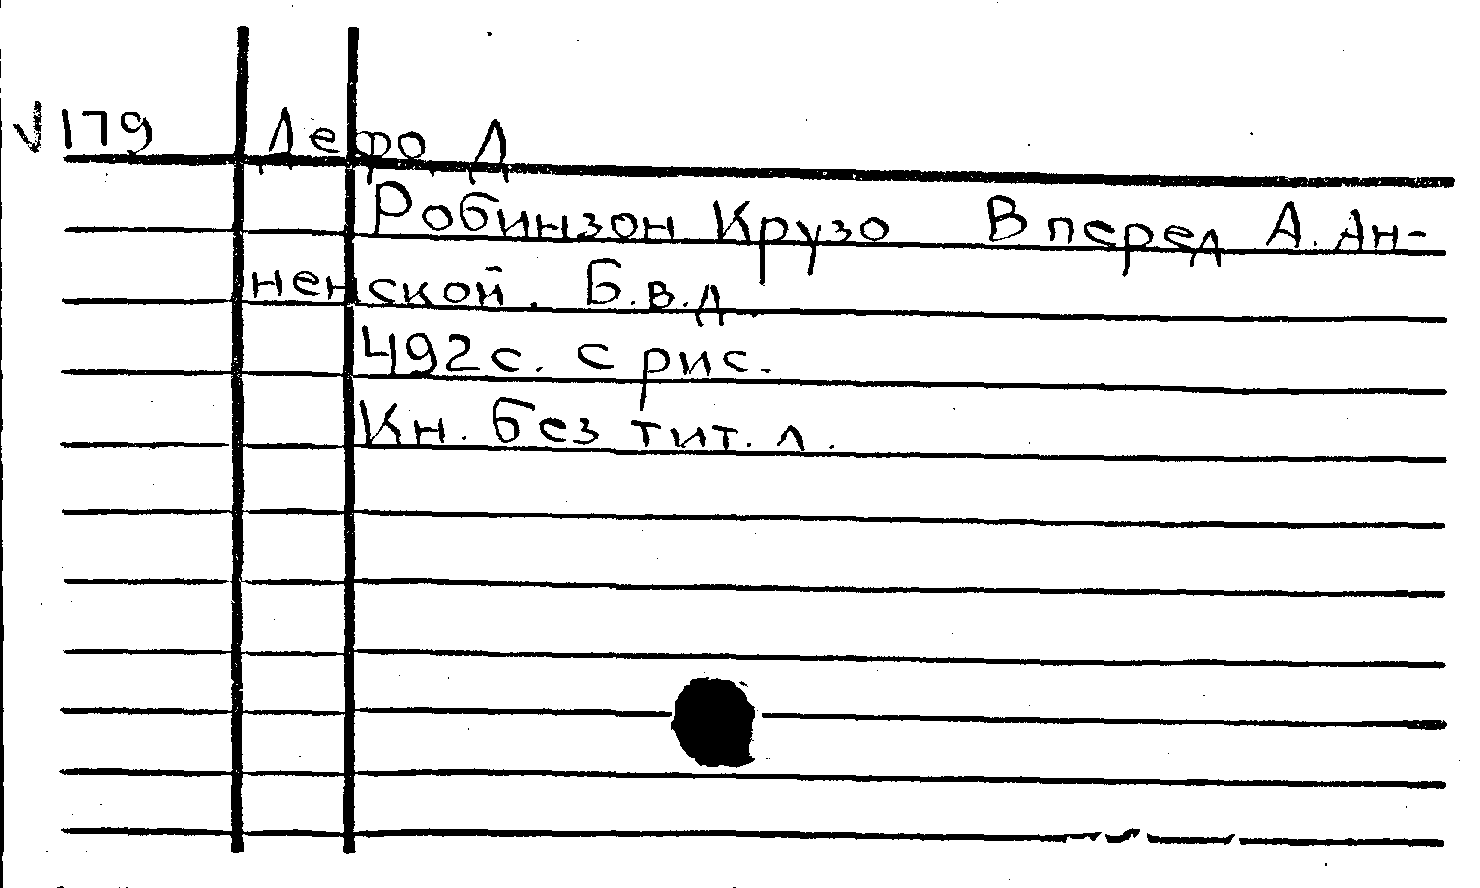 √179 Дефо Д
Робинзон Крузо В перед А. Ан-
ненской. Б.в.д.
492 с. с рис.
Кн. без тит. л.